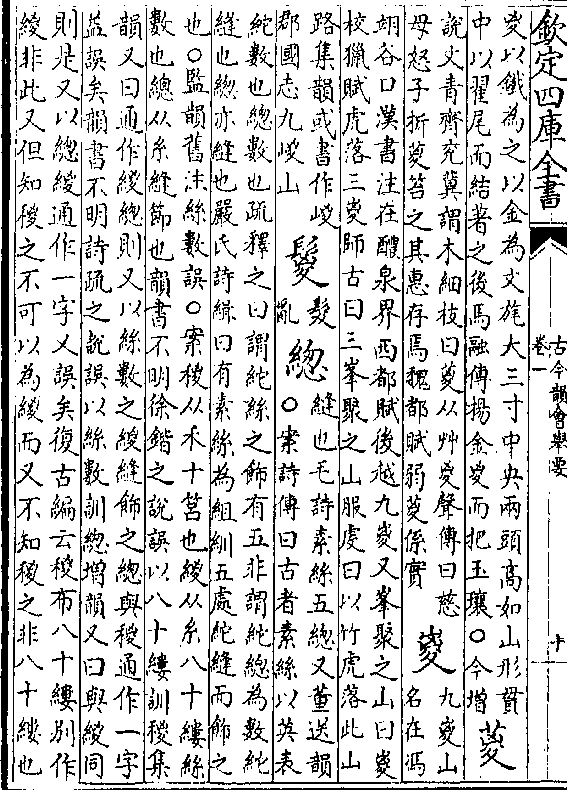 欽定四庫全書
古今韻會舉要
卷一
十
㚇以鐵為之以金為文旄大三寸中央兩頭高如山形貫
中以翟尾而結著之後馬融傳揚金㚇而拖玉瓖○今增 葼
說文青齊兖冀謂木細枝曰葼从艸㚇聲傳曰慈
母怒子折葼笞之其惠存焉魏都賦弱葼係實 嵏 九嵏山
名在馮
翊谷口漢書注在醴泉界西都賦後越九嵏又峯聚之山曰嵏
校獵賦虎落三嵏師古曰三峯聚之山服虔曰以竹虎落此山
路集韻或書作嵕
郡國志九嵕山 鬉 髮
亂 總 縫也毛詩素絲五總又董送韻
○案詩傳曰古者素絲以英表
紽數也總數也疏釋之曰謂紽絲之飾有五非謂紽總為數紽
縫也總亦縫也嚴氏詩緝曰有素絲為組紃五處紽縫而飾之
也○監韻舊注絲數誤○案稯从禾十筥也緵从糸八十縷絲
數也總从糸縫節也韻書不明徐鍇之說誤以八十縷訓稯集
韻又曰通作緵總則又以絲數之緵縫飾之總與稯通作一字
益誤矣韻書不明詩疏之說誤以絲數訓總增韻又曰與緵同
則是又以總緵通作一字又誤矣復古編云稯布八十縷別作
緵非此又但知稯之不可以為緵而又不知稯之非八十縷也